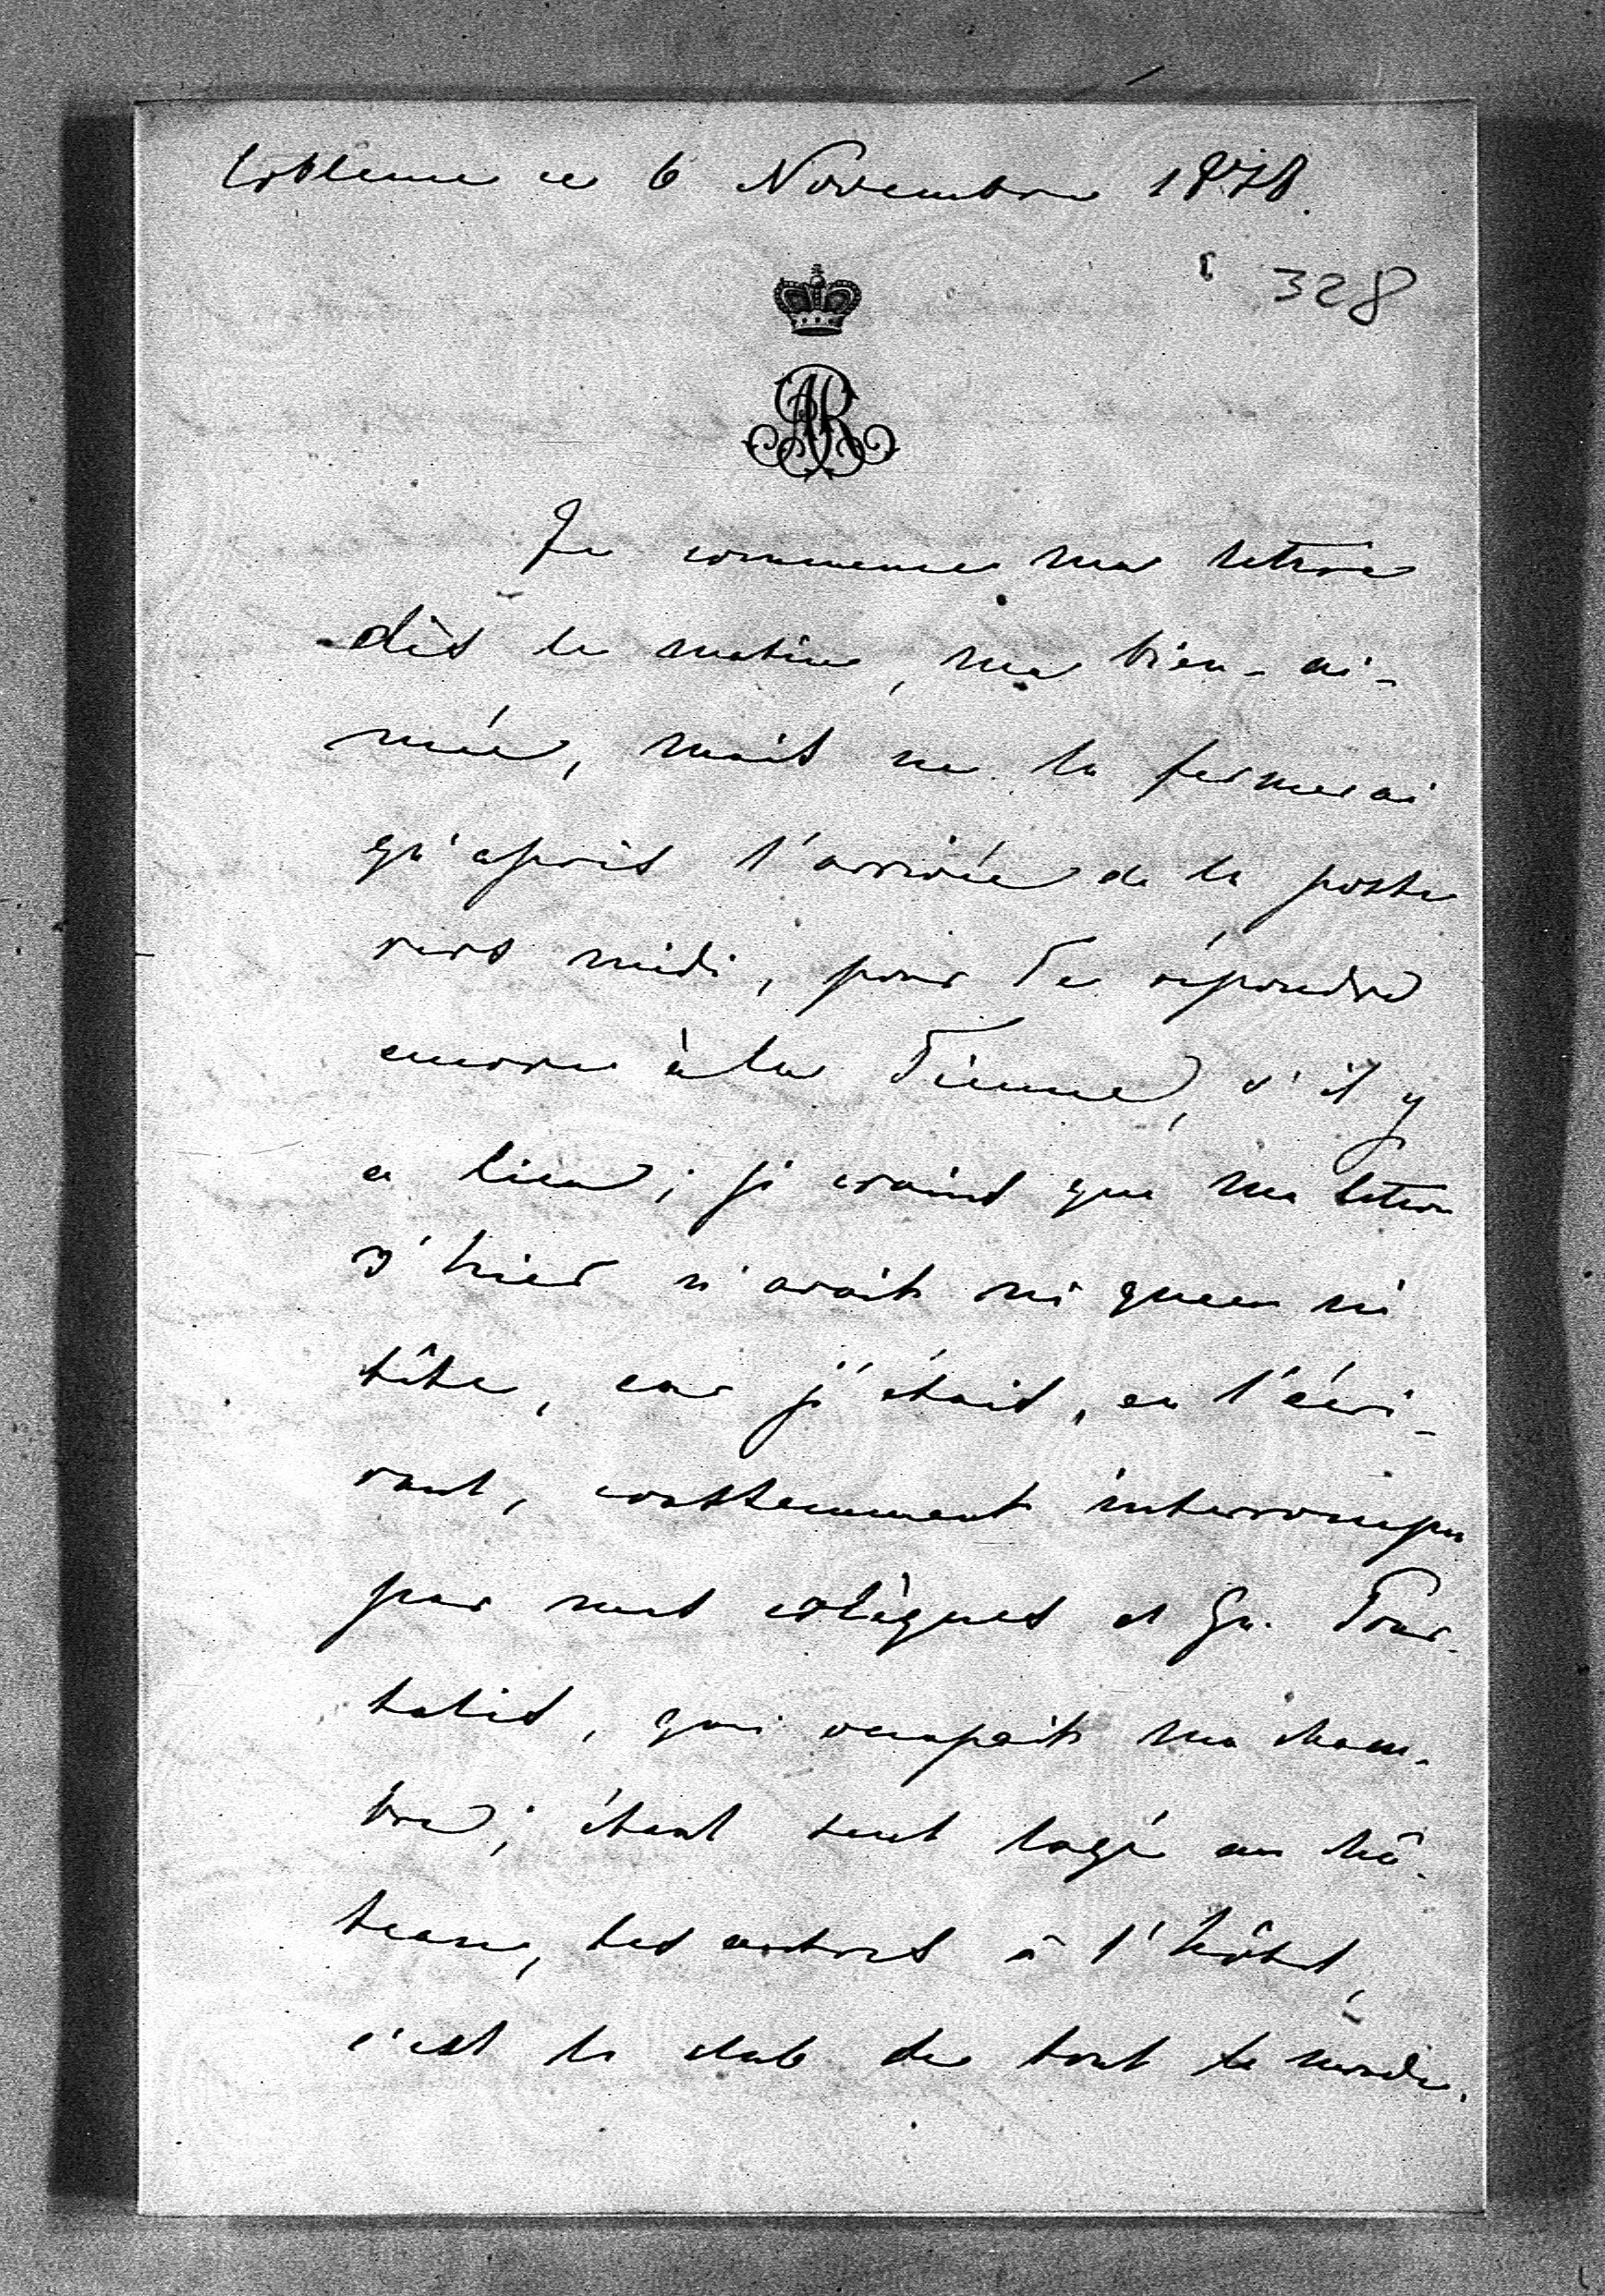 Coblence ce 6 Novembre 1878.
328
AR
Je commence ma lettre
dès le matin, ma bien-ai-
mée, mais ne la fermerai
qu'après l'arrivée de la poste
vers midi, pour Te répondre
encore à la Tienne, s'il y
a lieu; je crains que ma lettre
d'hier n'avait ni queue ni
tête, car j'étais, en l'écri-
vant, constemment interrompu
par mes colègues et Gu. Pour-
talès, qui occupait ma cham-
bre; étant seul logé au châ-
teau, les autres à l'hôtel,
c'est le club de tout le monde.